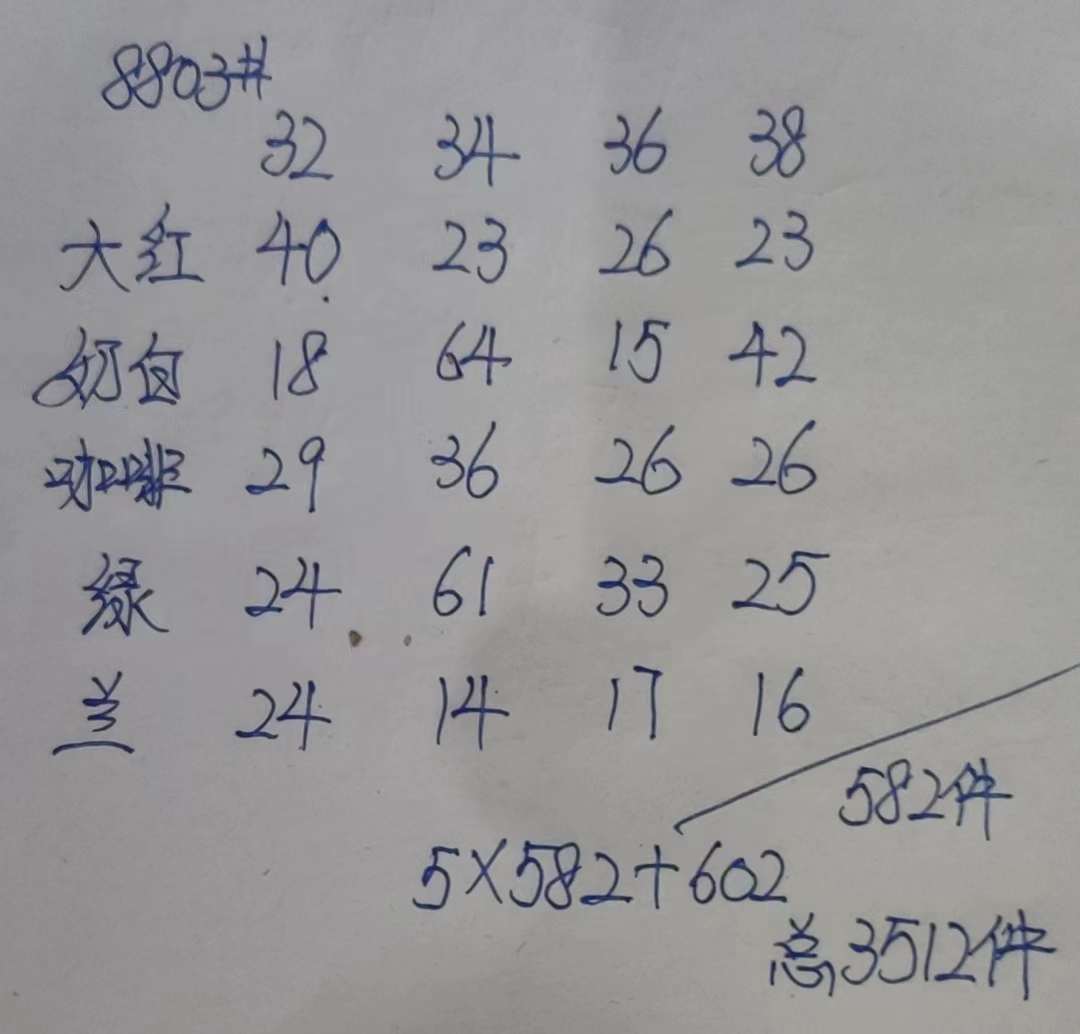 8803#
32 34 36 38
大红 40 23 26 23
奶白 18 64 15 42
咖啡 29 36 26 26
绿 24 61 33 25
兰 24 14 17 16
582件
5×582+602
总3512件